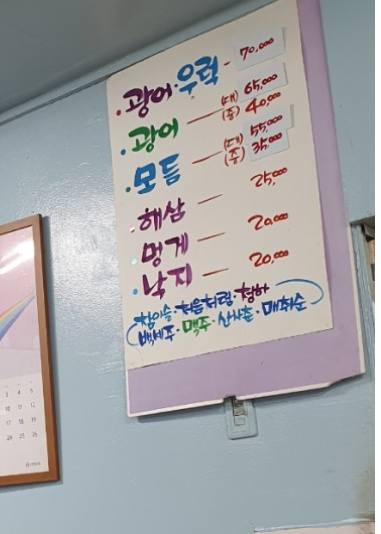 · 광어·우럭 - 70,000
· 광어 — (대) 65,000
(중) 40,000
· 모듬 — (대) 55,000
(중) 35,000
· 해삼 — 25,000
· 멍게 — 20,000
· 낙지 — 20,000
참이슬·처음처럼·청하
백세주·맥주·산사춘·매취순
3 4 5
10 11 12
17 18 19
24 25 26